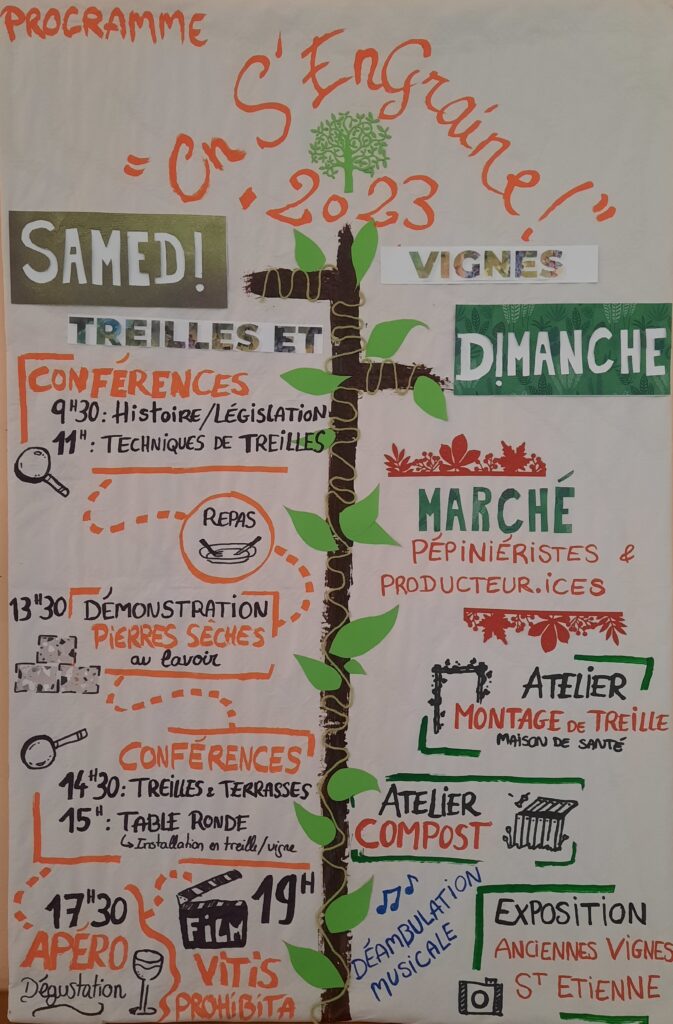 PROGRAMME
"On S'EnGraine!"
2023
SAMED!
TREILLES ET
VIGNES
CONFÉRENCES
9H30: Histoire/Législation
11H: TECHNIQUES DE TREILLES
REPAS
13H30 DÉMONSTRATION
PIERRES SÈCHES
au lavoir
CONFÉRENCES
14H30: TREILLES & TERRASSES
15H: TABLE RONDE
↳ Installation en treille/vigne
17H30
APÉRO
Dégustation
19H
FiLM
ViTiS
PROHiBiTA
D!MANCHE
MARCHÉ
PÉPINIÉRISTES &
PRODUCTEUR.ICES
ATELIER
MONTAGE DE TREILLE
MAISON DE SANTÉ
ATELIER
COMPOST
DÉAMBULATION
MUSICALE
EXPOSITION
ANCIENNES VIGNES
ST ETIENNE